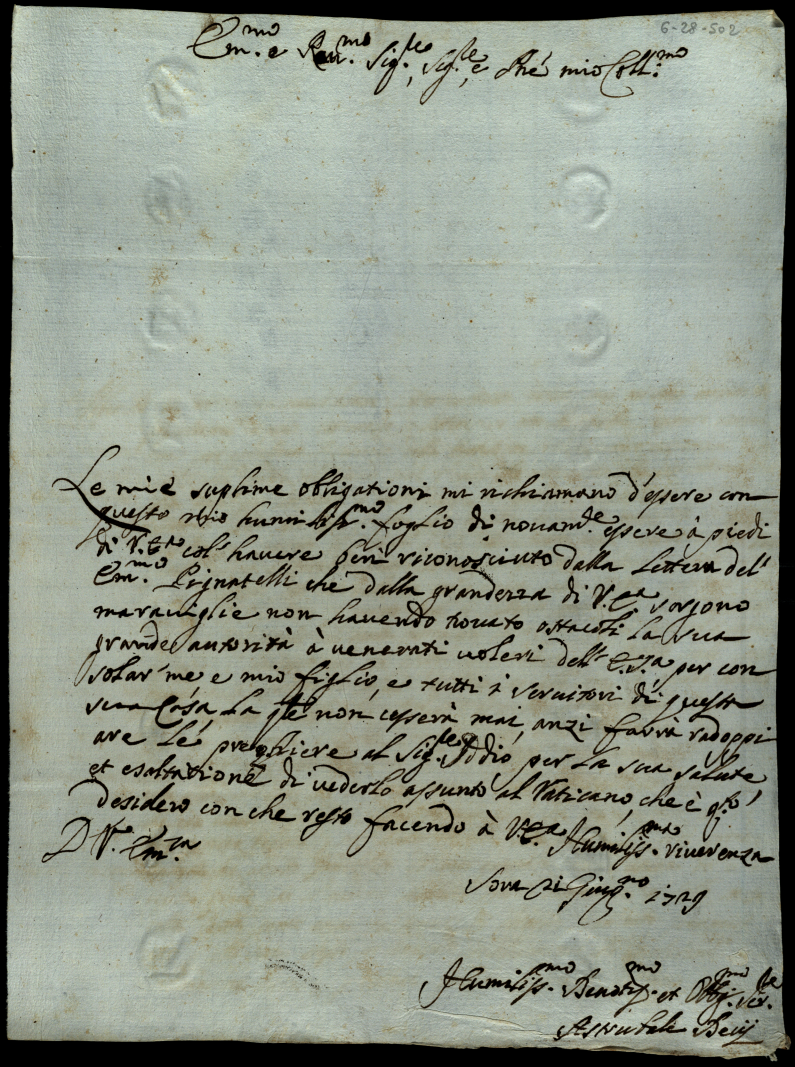 6-28-502
Em.mo e Rev.mo Sig.re, Sig.re, e Pñe mio Coll.mo
Le mie suplime obligationi mi richiamano d'essere con
questo mio humiliss.mo foglio di nouam.te essere à piedi
di V.Ea col' havere ben riconosciuto dalla lettera dell'
Em.mo Pignatelli che dalla grandezza di V.Ea sorgono
maraviglie non havendo trovato ostacoli la sua
grande autorità à venerati voleri dell' E.Va per con
solar' me e mio figlio, e tutti i servitori di questa
sua Casa la qle non cesserà mai, anzi farrà radoppi
are le preghiere al Sig.re Iddio per la sua salute
et esaltatione di vederlo assunto al Vaticano, che è q.to
desidero con che resto facendo à V.Ea Humiliss.ma riverenza
D V. Em.za
Sora 21 Giug.no 1729
Humiliss.mo et Obl.mo Ser.re